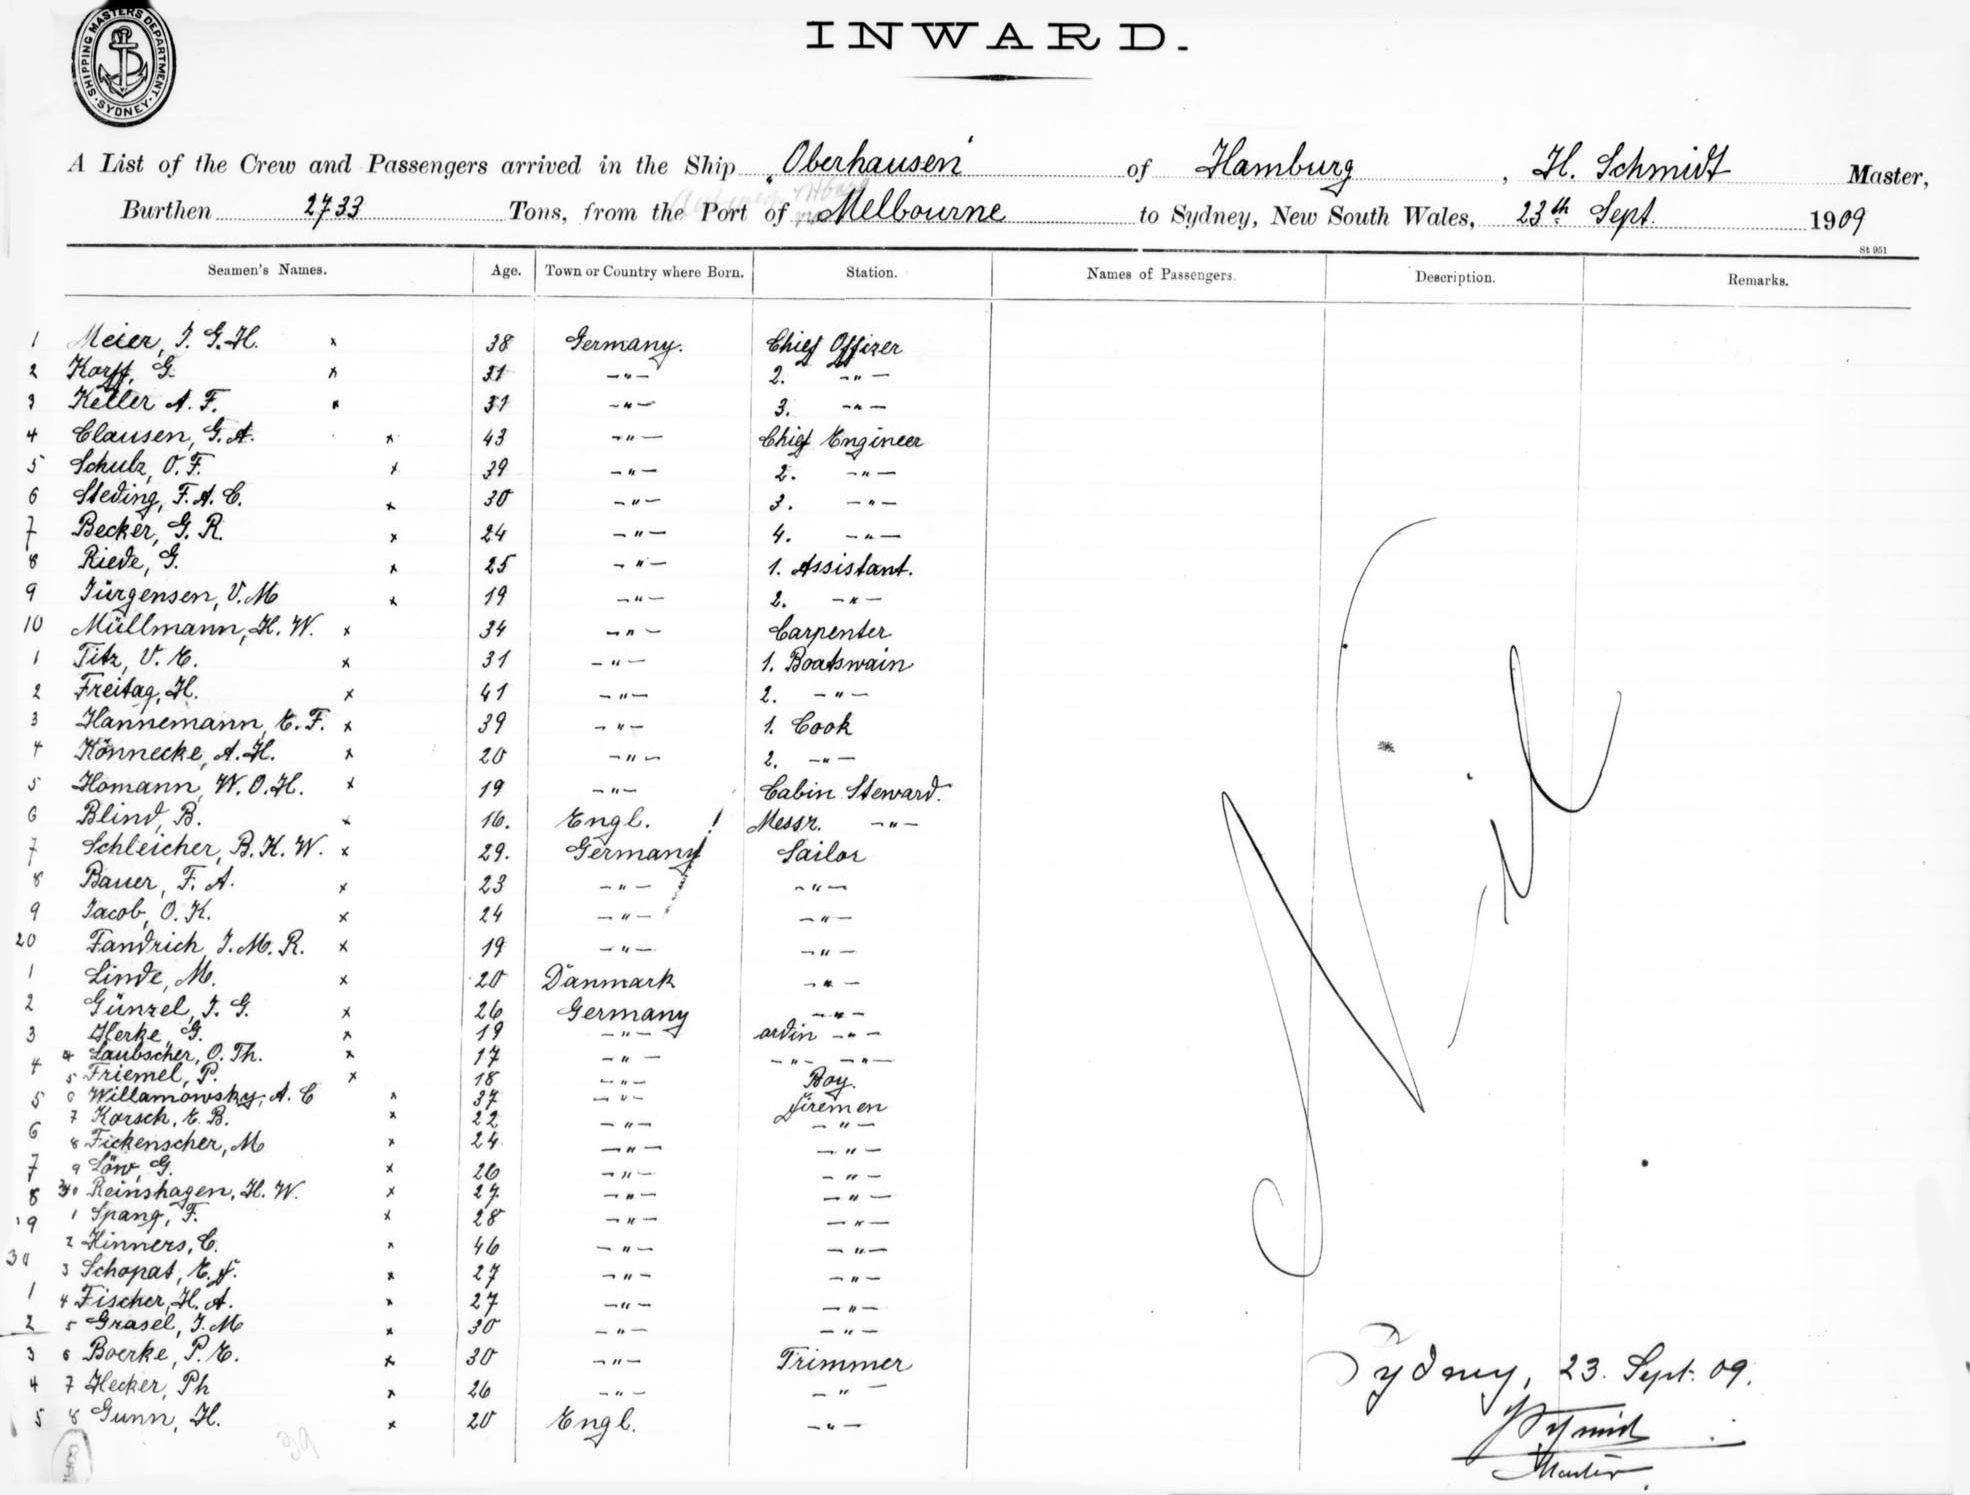 SHIPPING MASTERS DEPARTMENT · SYDNEY ·
INWARD.
A List of the Crew and Passengers arrived in the Ship "Oberhausen" of Hamburg, H. Schmidt Master,
Burthen 2733 Tons, from the Port of Melbourne to Sydney, New South Wales, 23th Sept. 1909
St 951
Seamen's Names. Age. Town or Country where Born. Station. Names of Passengers. Description. Remarks.
1 Meier, J. G. H. x 38 Germany. Chief Offizer
2 Korff, G. x 31 —"— 2. —"—
3 Keller A. F. x 31 —"— 3. —"—
4 Clausen, G. A. x 43 —"— Chief Engineer
5 Schulz, O. F. x 39 —"— 2. —"—
6 Steding, F. A. C. x 30 —"— 3. —"—
7 Becker, G. R. x 24 —"— 4. —"—
8 Riede, G. x 25 —"— 1. Assistant.
9 Jürgensen, V. M x 19 —"— 2. —"—
10 Müllmann, H. W. x 34 —"— Carpenter
1 Titz, V. E. x 31 —"— 1. Boatswain
2 Freitag, H. x 41 —"— 2. —"—
3 Hannemann, E. F. x 39 —"— 1. Cook
4 Könnecke, A. H. x 20 —"— 2. —"—
5 Homann, W. O. H. x 19 —"— Cabin Steward.
6 Blind, B. x 16. Engl. Messr. —"—
7 Schleicher, B. K. W. x 29. Germany Sailor
8 Bauer, F. A. x 23 —"— —"—
9 Jacob, O. K. x 24 —"— —"—
20 Fandrich, J. M. R. x 19 —"— —"—
1 Linde, M. x 20 Danmark —"—
2 Günzel, J. G. x 26 Germany —"—
3 Herke, G. x 19 —"— ordin —"—
4 4 Laubscher, O. Th. x 17 —"— —"— —"—
5 Friemel, P. x 18 —"— Boy.
5 6 Willamowsky, A. C x 37 —"— Firemen
7 Korsch, E. B. x 22 —"— —"—
6 8 Fickenscher, M x 24 —"— —"—
7 9 Löw, G. x 26 —"— —"—
8 30 Reinshagen, H. W. x 27 —"— —"—
9 1 Spang, F. x 28 —"— —"—
30 2 Hinners, C. x 46 —"— —"—
3 Schopat, E. F. x 27 —"— —"—
1 4 Fischer, H. A. x 27 —"— —"—
2 5 Grasel, J. M x 30 —"— —"—
3 6 Boerke, P. E. x 30 —"— Trimmer
4 7 Hecker, Ph x 26 —"— —"—
5 8 Gunn, H. x 20 Engl. —"—
Nil
Sydney, 23. Sept. 09.
H Schmidt
Master
39